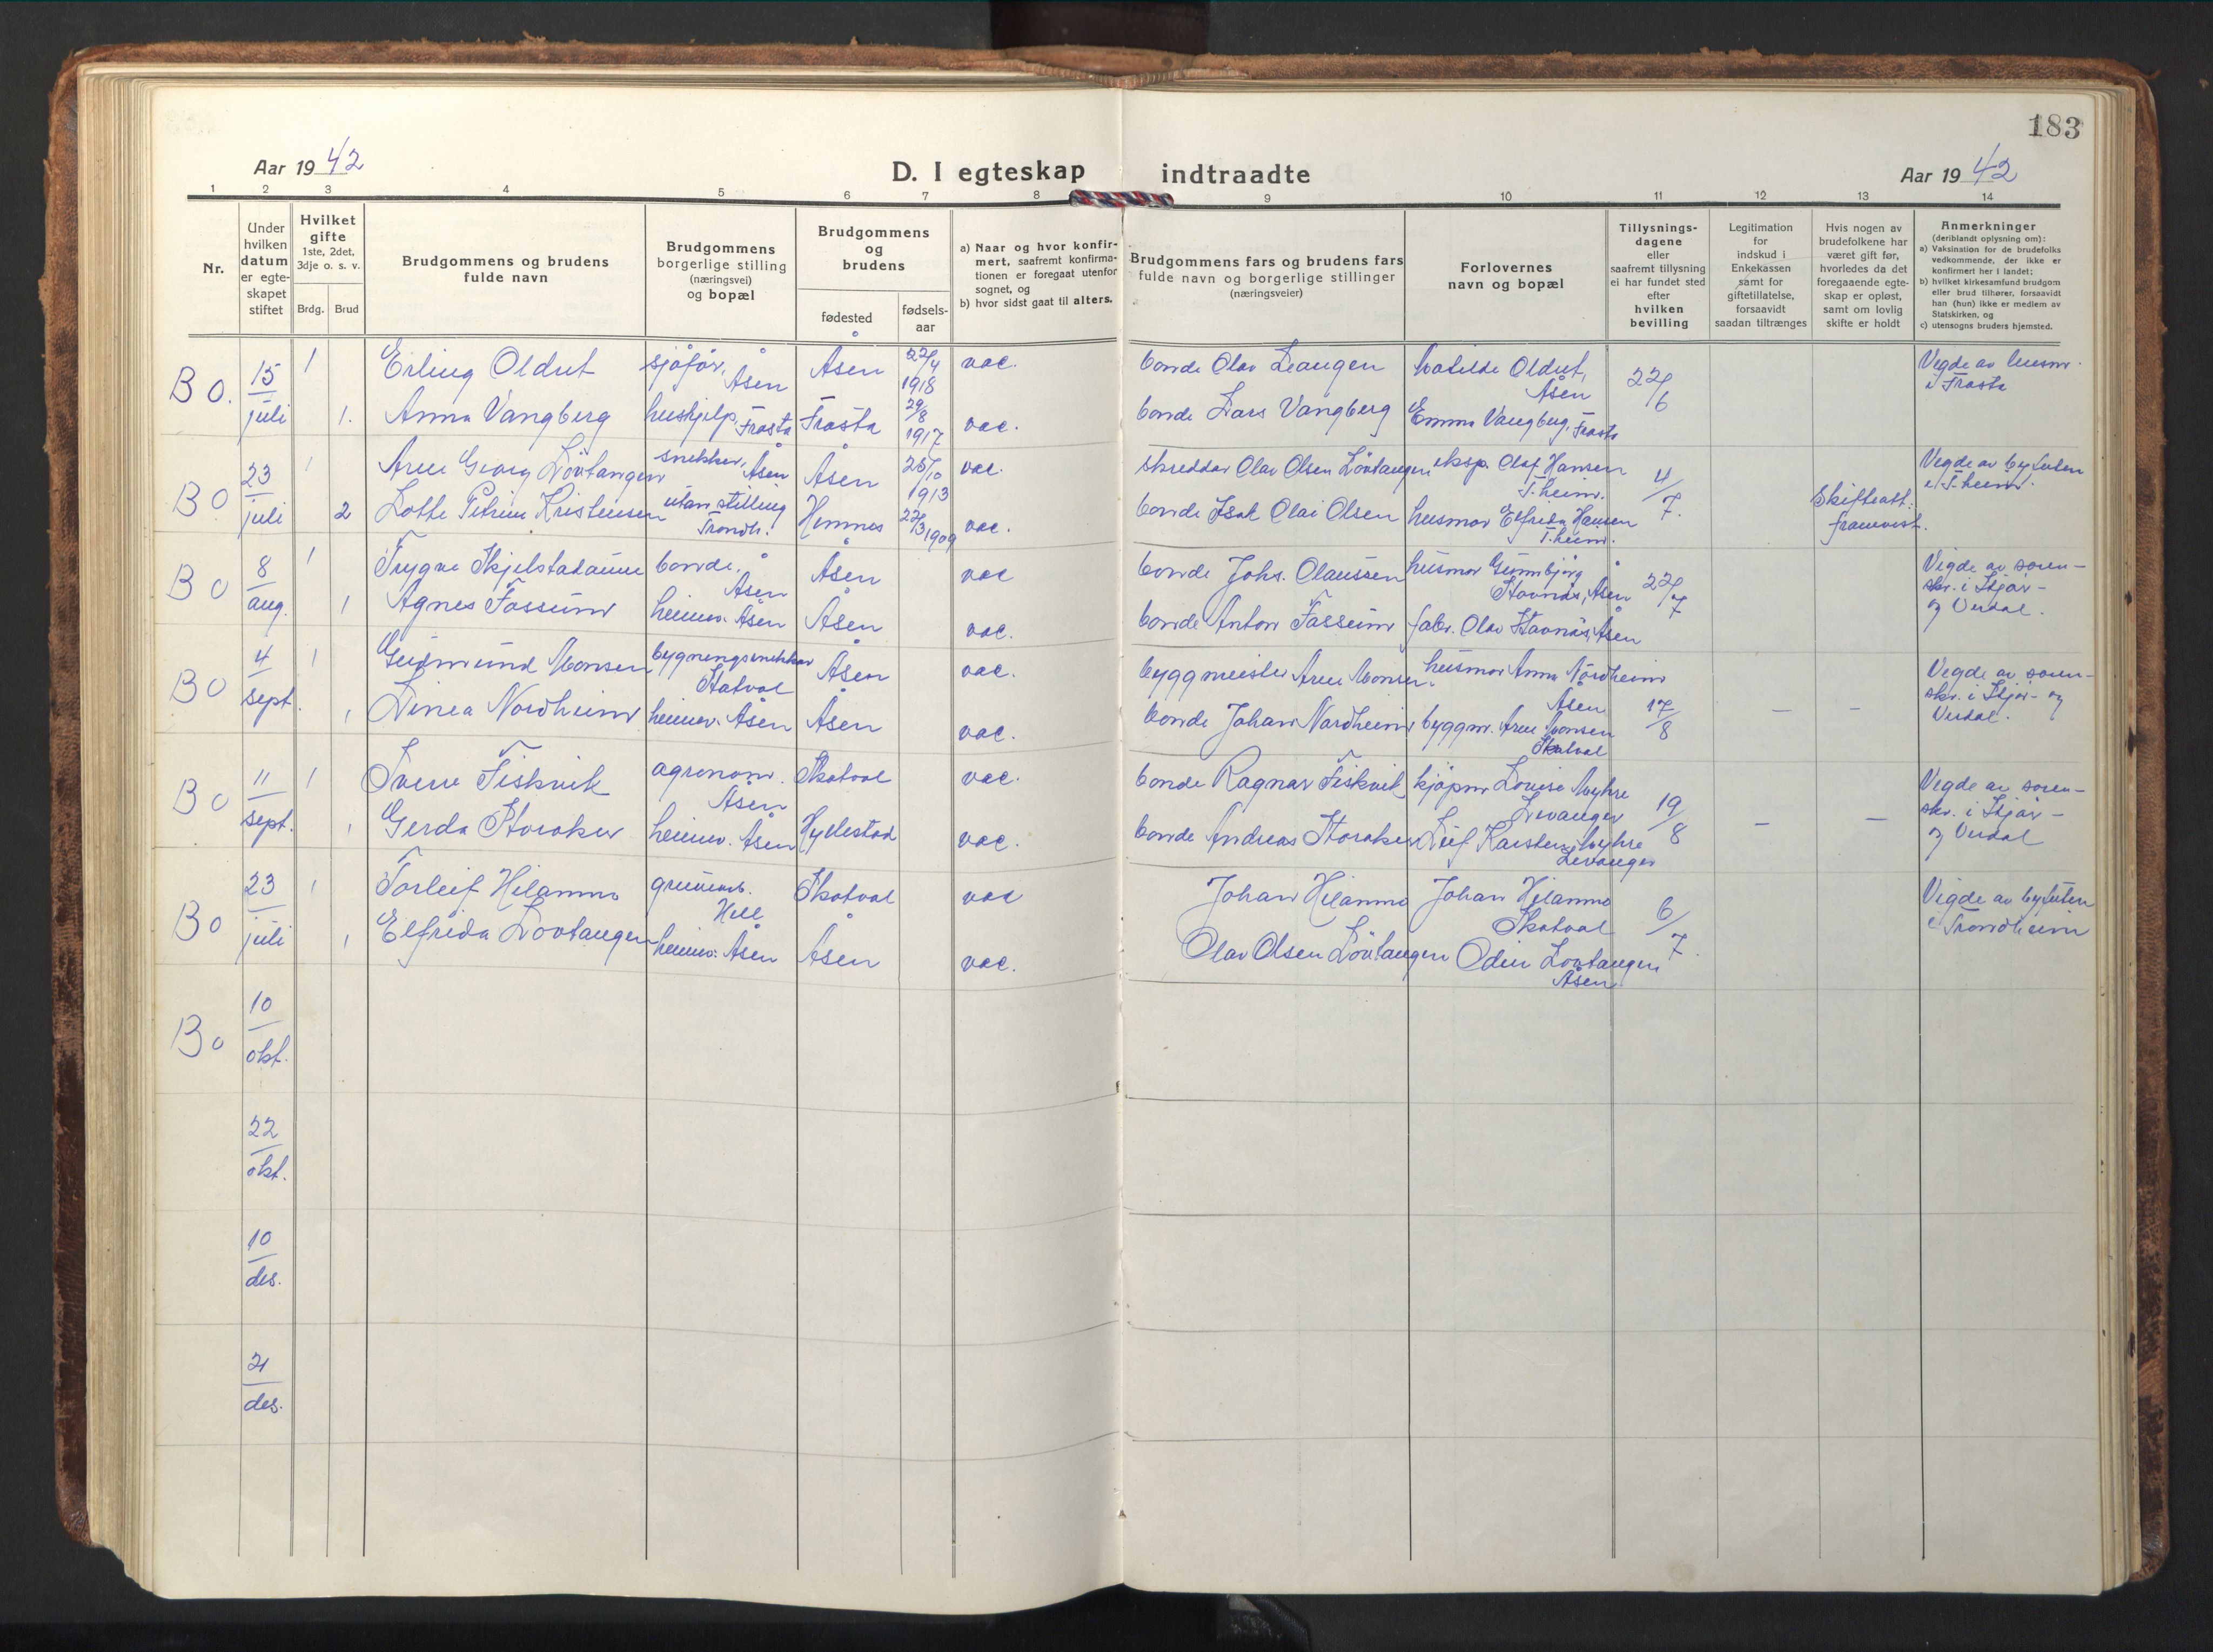 183
Aar 1942
D. I egteskap indtraadte
Aar 1942
1 2 3 4 5 6 7 8 9 10 11 12 13 14
Nr.
Under
hvilken
datum
er egte-
skapet
stiftet
Hvilket
gifte
1ste, 2det,
3dje o. s. v.
Brdg. Brud
Brudgommens og brudens
fulde navn
Brudgommens
borgerlige stilling
(næringsvei)
og bopæl
Brudgommens
og
brudens
fødested
fødsels-
aar
a) Naar og hvor konfir-
mert, saafremt konfirma-
tionen er foregaat utenfor
sognet, og
b) hvor sidst gaat til alters.
Brudgommens fars og brudens fars
fulde navn og borgerlige stillinger
(næringsveier)
Forlovernes
navn og bopæl
Tillysnings-
dagene
eller
saafremt tillysning
ei har fundet sted
efter
hvilken
bevilling
Legitimation
for
indskud i
Enkekassen
samt for
giftetillatelse,
forsaavidt
saadan tiltrænges
Hvis nogen av
brudefolkene har
været gift før,
hvorledes da det
foregaaende egte-
skap er opløst,
samt om lovlig
skifte er holdt
Anmerkninger
(deriblandt oplysning om):
a) Vaksination for de brudefolks
vedkommende, der ikke er
konfirmert her i landet;
b) hvilket kirkesamfund brudgom
eller brud tilhører, forsaavidt
han (hun) ikke er medlem av
Statskirken, og
c) utensogns bruders hjemsted.
B O. 15/juli 1 Erling Oldrut sjåfør, Åsen Åsen 22/4 1918 vac. bonde Olav Leangen Matilde Oldrut, Åsen 22/6 Vegde av
i Frosta
1. Anna Vangberg hushjelp, Frosta Frosta 29/8 1917 vac. bonde Lars Vangberg Emma Vangberg, Frosta
B O 23/juli 1 Arne Georg Lövtangen snekker, Åsen Åsen 25/10 1913 vac. skreddar Olav Olsen Lövtangen eksp. Olaf Hansen T.heim. 4/7. Vegde av byfuten
i T.heim.
2 Lotte Petrine Kristensen utan stilling Trondh. Hemnes 27/3 1909 vac. bonde Isak Olai Olsen husmor Elfrida Hansen T.heim. Skifteatt. framvist.
B O 8/aug. 1 Trygve Skjelstadaune bonde, Åsen Åsen vac bonde Johs. Olaussen husmor Gunnbjørg Stavnås, Åsen 22/7 Vegde av soren-
skr. i Stjør-
og Verdal.
1 Agnes Fossum heimev. Åsen Åsen vac. bonde Anton Fossum fabr. Olav Stavnås, Åsen
B O 4/sept. 1 Gudmund Monsen bygningssnekker Skatval Åsen vac. byggmeister Arne Monsen. husmor Anna Nordheim Åsen 17/8 Vegde av soren-
skr. i Stjør- og
Verdal.
1 Linea Nordheim heimev. Åsen Åsen vac. bonde Johan Nordheim byggm. Arne Monsen Skatval – –
B O 11/sept. 1 Sverre Fiskvik agronom. Åsen Skatval vac. bonde Ragnar Fiskvik kjøpm Louise Myhre Levanger 19/8 Vegde av soren-
skr. i Stjør-
og Verdal
1 Gerda Storaker heimev. Åsen Hyllestad vac. bonde Andreas Storaker Leif Karsten Myhre Levanger – –
B O 23/juli 1 Torleif Hilammo Hell Skatval vac Johan Hilammo Johan Hilammo Skatval 6/7. Vegde av byfuten
i Trondheim
1 Elfrida Lovtangen heimev. Åsen Åsen vac. Olav Olsen Lövtangen Odin Lovtangen Åsen
B O 10/okt.
22/okt.
10/des.
21/des.